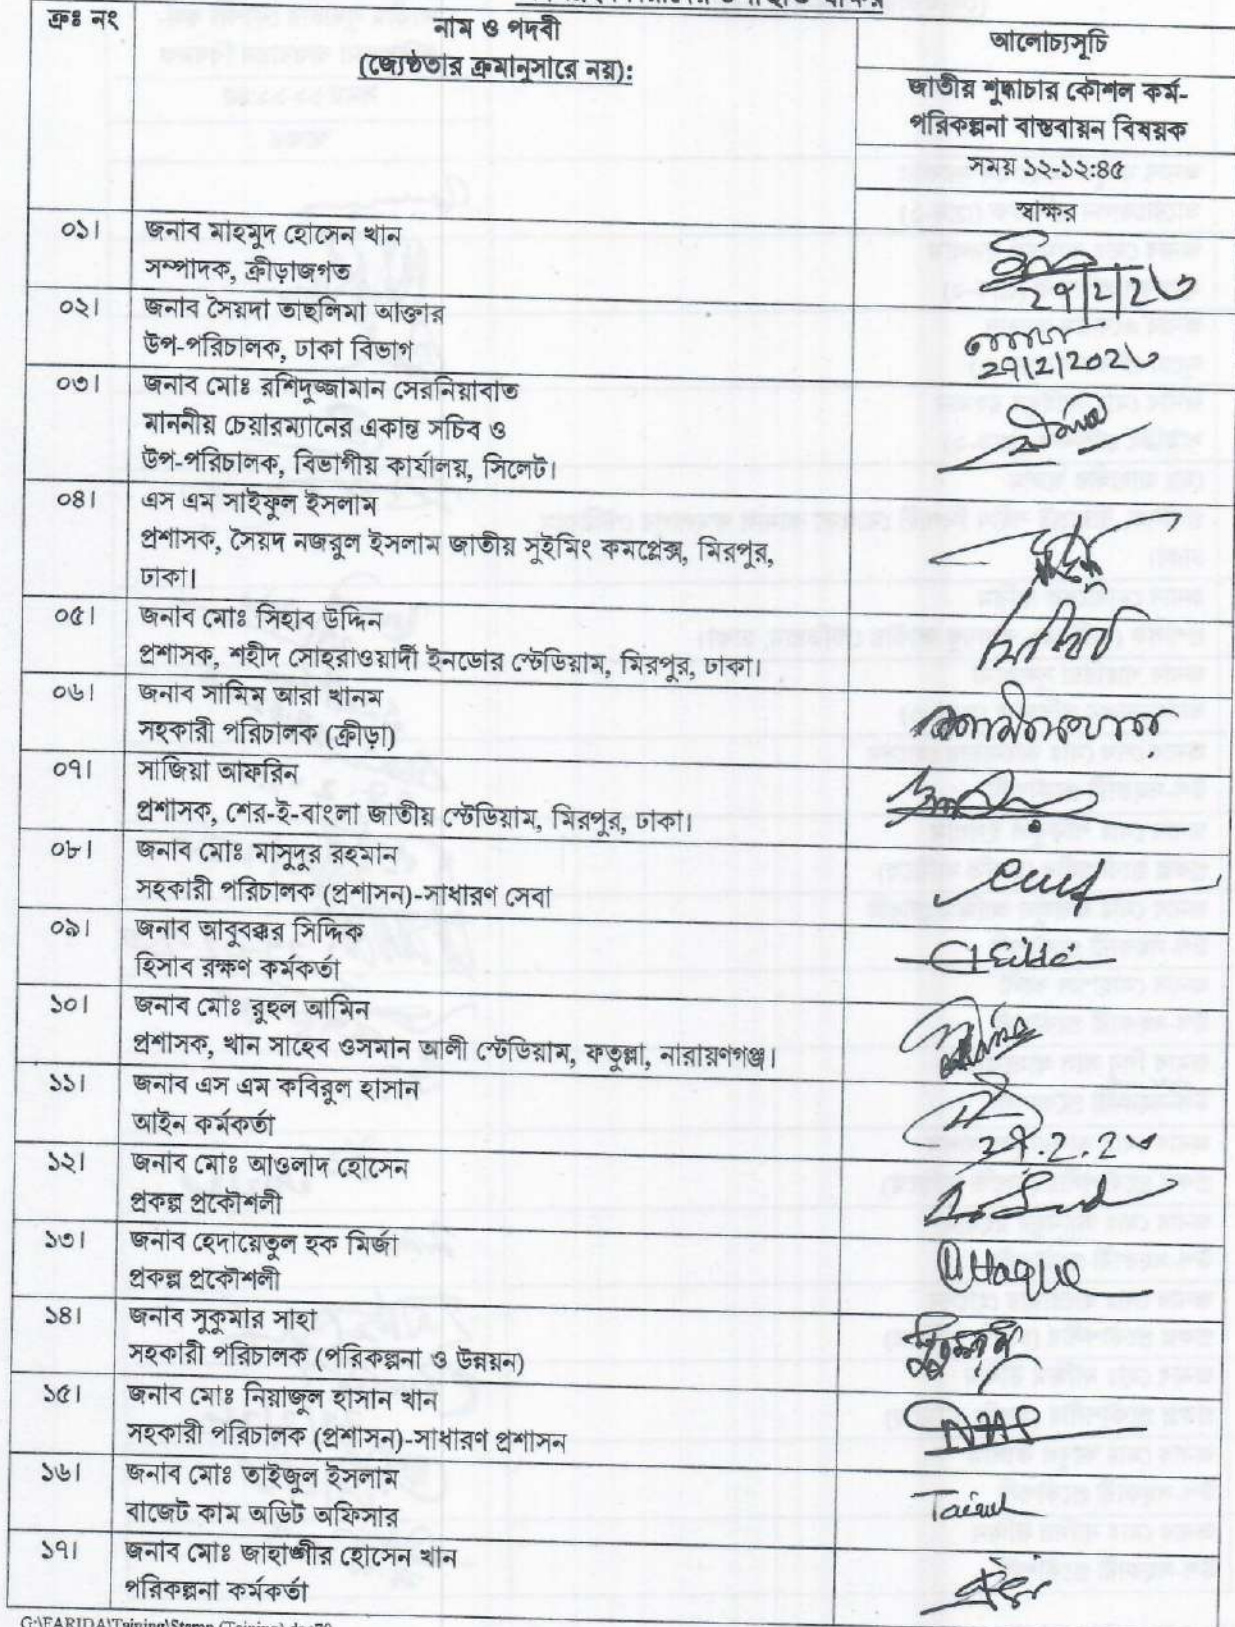 ক্রঃ নং
নাম ও পদবী
(জ্যেষ্ঠতার ক্রমানুসারে নয়):
আলোচ্যসূচি
জাতীয় শুদ্ধাচার কৌশল কর্ম-
পরিকল্পনা বাস্তবায়ন বিষয়ক
সময় ১২-১২:৪৫
স্বাক্ষর
০১।
জনাব মাহমুদ হোসেন খান
সম্পাদক, ক্রীড়াজগত
২৭/২/২৩
০২।
জনাব সৈয়দা তাছলিমা আক্তার
উপ-পরিচালক, ঢাকা বিভাগ
২৭/২/২০২৩
০৩।
জনাব মোঃ রশিদুজ্জামান সেরনিয়াবাত
মাননীয় চেয়ারম্যানের একান্ত সচিব ও
উপ-পরিচালক, বিভাগীয় কার্যালয়, সিলেট।
০৪।
এস এম সাইফুল ইসলাম
প্রশাসক, সৈয়দ নজরুল ইসলাম জাতীয় সুইমিং কমপ্লেক্স, মিরপুর,
ঢাকা।
০৫।
জনাব মোঃ সিহাব উদ্দিন
প্রশাসক, শহীদ সোহরাওয়ার্দী ইনডোর স্টেডিয়াম, মিরপুর, ঢাকা।
০৬।
জনাব সামিম আরা খানম
সহকারী পরিচালক (ক্রীড়া)
০৭।
সাজিয়া আফরিন
প্রশাসক, শের-ই-বাংলা জাতীয় স্টেডিয়াম, মিরপুর, ঢাকা।
০৮।
জনাব মোঃ মাসুদুর রহমান
সহকারী পরিচালক (প্রশাসন)-সাধারণ সেবা
০৯।
জনাব আবুবক্কর সিদ্দিক
হিসাব রক্ষণ কর্মকর্তা
১০।
জনাব মোঃ রুহুল আমিন
প্রশাসক, খান সাহেব ওসমান আলী স্টেডিয়াম, ফতুল্লা, নারায়ণগঞ্জ।
১১।
জনাব এস এম কবিরুল হাসান
আইন কর্মকর্তা
২৭.২.২৩
১২।
জনাব মোঃ আওলাদ হোসেন
প্রকল্প প্রকৌশলী
১৩।
জনাব হেদায়েতুল হক মির্জা
প্রকল্প প্রকৌশলী
Haque
১৪।
জনাব সুকুমার সাহা
সহকারী পরিচালক (পরিকল্পনা ও উন্নয়ন)
১৫।
জনাব মোঃ নিয়াজুল হাসান খান
সহকারী পরিচালক (প্রশাসন)-সাধারণ প্রশাসন
১৬।
জনাব মোঃ তাইজুল ইসলাম
বাজেট কাম অডিট অফিসার
১৭।
জনাব মোঃ জাহাঙ্গীর হোসেন খান
পরিকল্পনা কর্মকর্তা